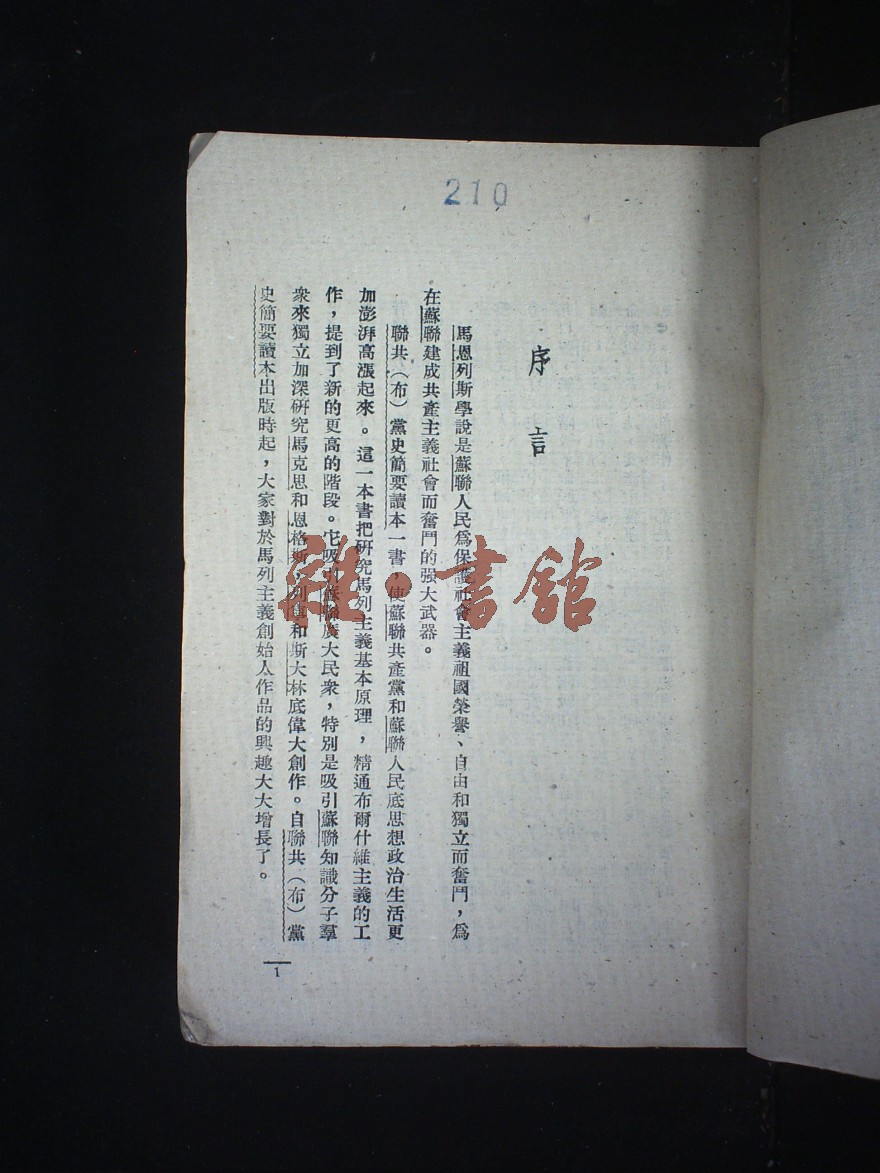 210
序言
馬恩列斯學說是蘇聯人民爲保護社會主義祖國榮譽、自由和獨立而奮鬥，爲
在蘇聯建成共產主義社會而奮鬥的强大武器。
聯共（布）黨史簡要讀本一書，使蘇聯共產黨和蘇聯人民底思想政治生活更
加澎湃高漲起來。這一本書把研究馬列主義基本原理，精通布爾什維主義的工
作，提到了新的更高的階段。它吸引蘇聯廣大民衆，特別是吸引蘇聯知識分子羣
衆來獨立加深研究馬克思和恩格斯，列寧和斯大林底偉大創作。自聯共（布）黨
史簡要讀本出版時起，大家對於馬列主義創始人作品的興趣大大增長了。
1
雜·書館